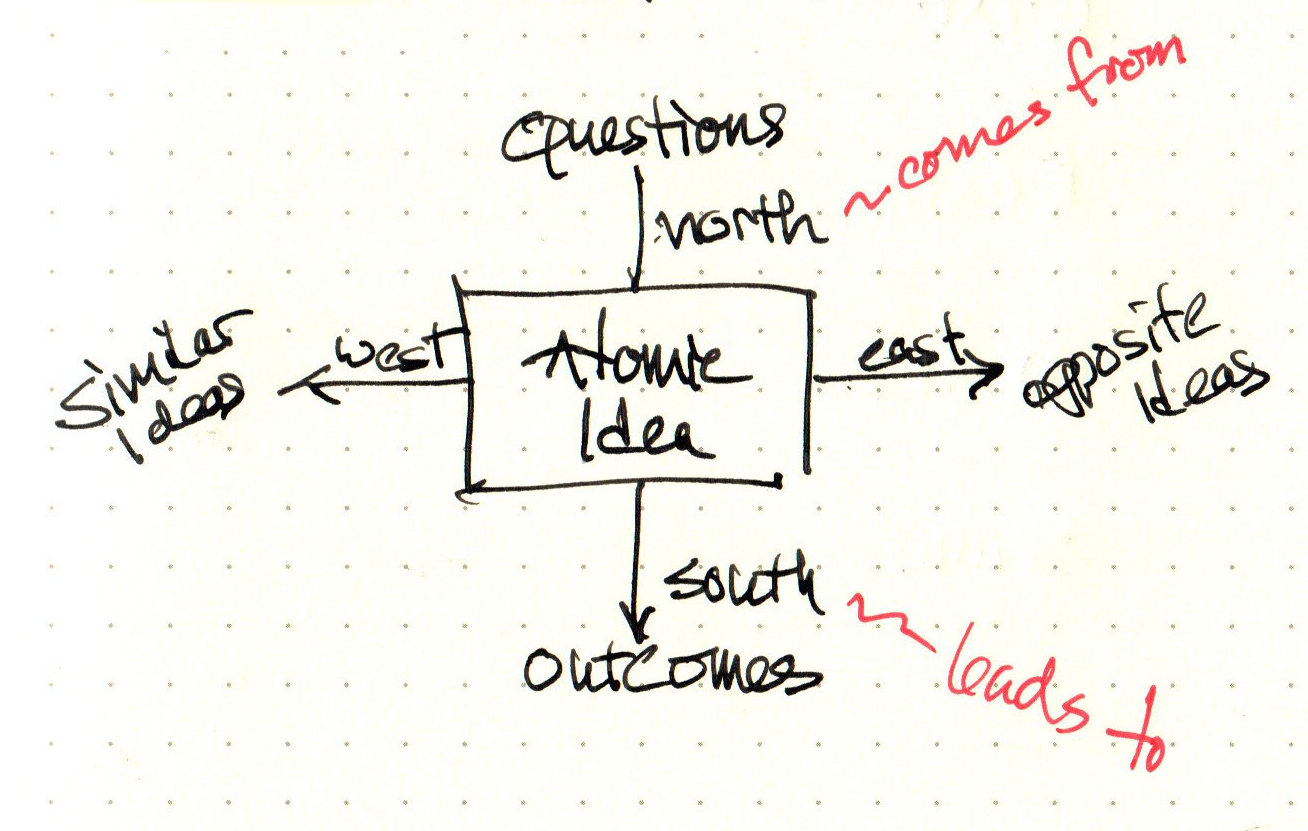 Questions
north
~ comes from
similar
ideas
west
Atomic
Idea
east
opposite
ideas
south
leads to
outcomes